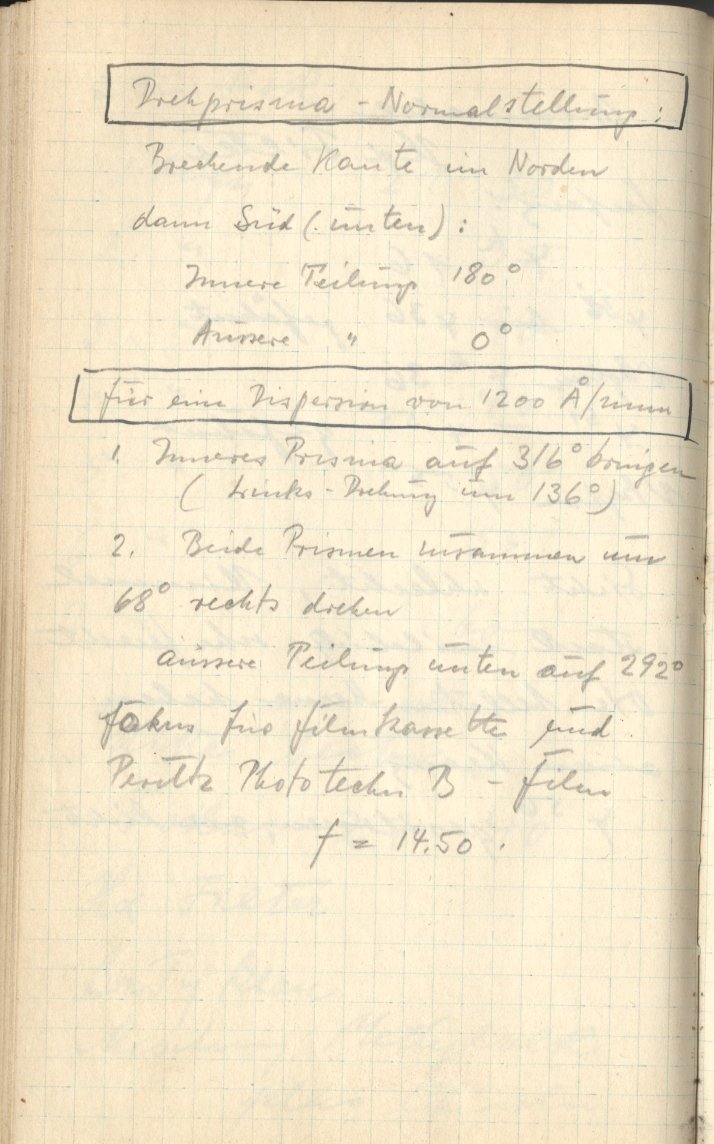 Drehprisma - Normalstellung:
Brechende Kante im Norden
dann Süd (unten):
Innere Teilung 180°
Äussere " 0°
für eine Dispersion von 1200 Å/mm
1. Inneres Prisma auf 316° bringen
(Links-Drehung um 136°)
2. Beide Prismen zusammen um
68° rechts drehen
äussere Teilung unten auf 292°
Fokus für Filmkassette und
Perutz Phototechn B - Film
f = 14.50.